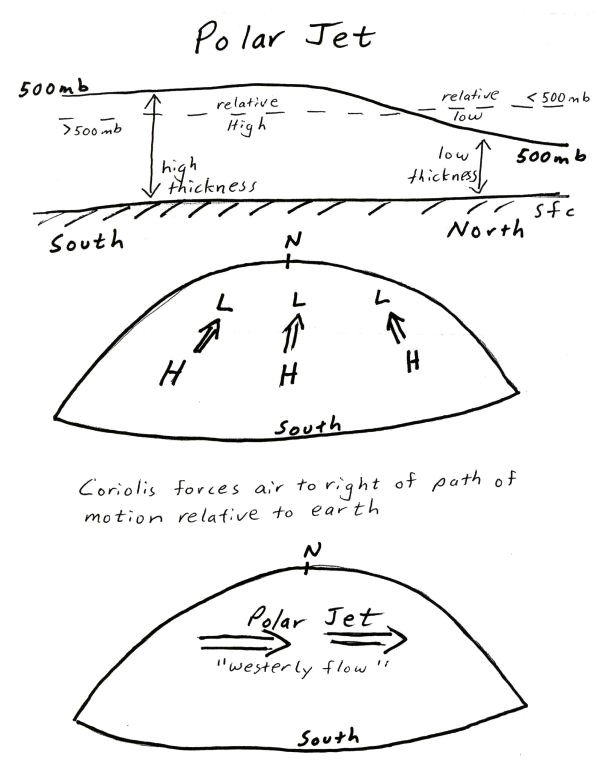 Polar Jet
500mb
relative
High
relative
low
<500mb
>500mb
high
thickness
low
thickness
500mb
South
North
sfc
N
L L L
H H H
South
Coriolis forces air to right of path of
motion relative to earth
N
Polar Jet
"westerly flow"
South